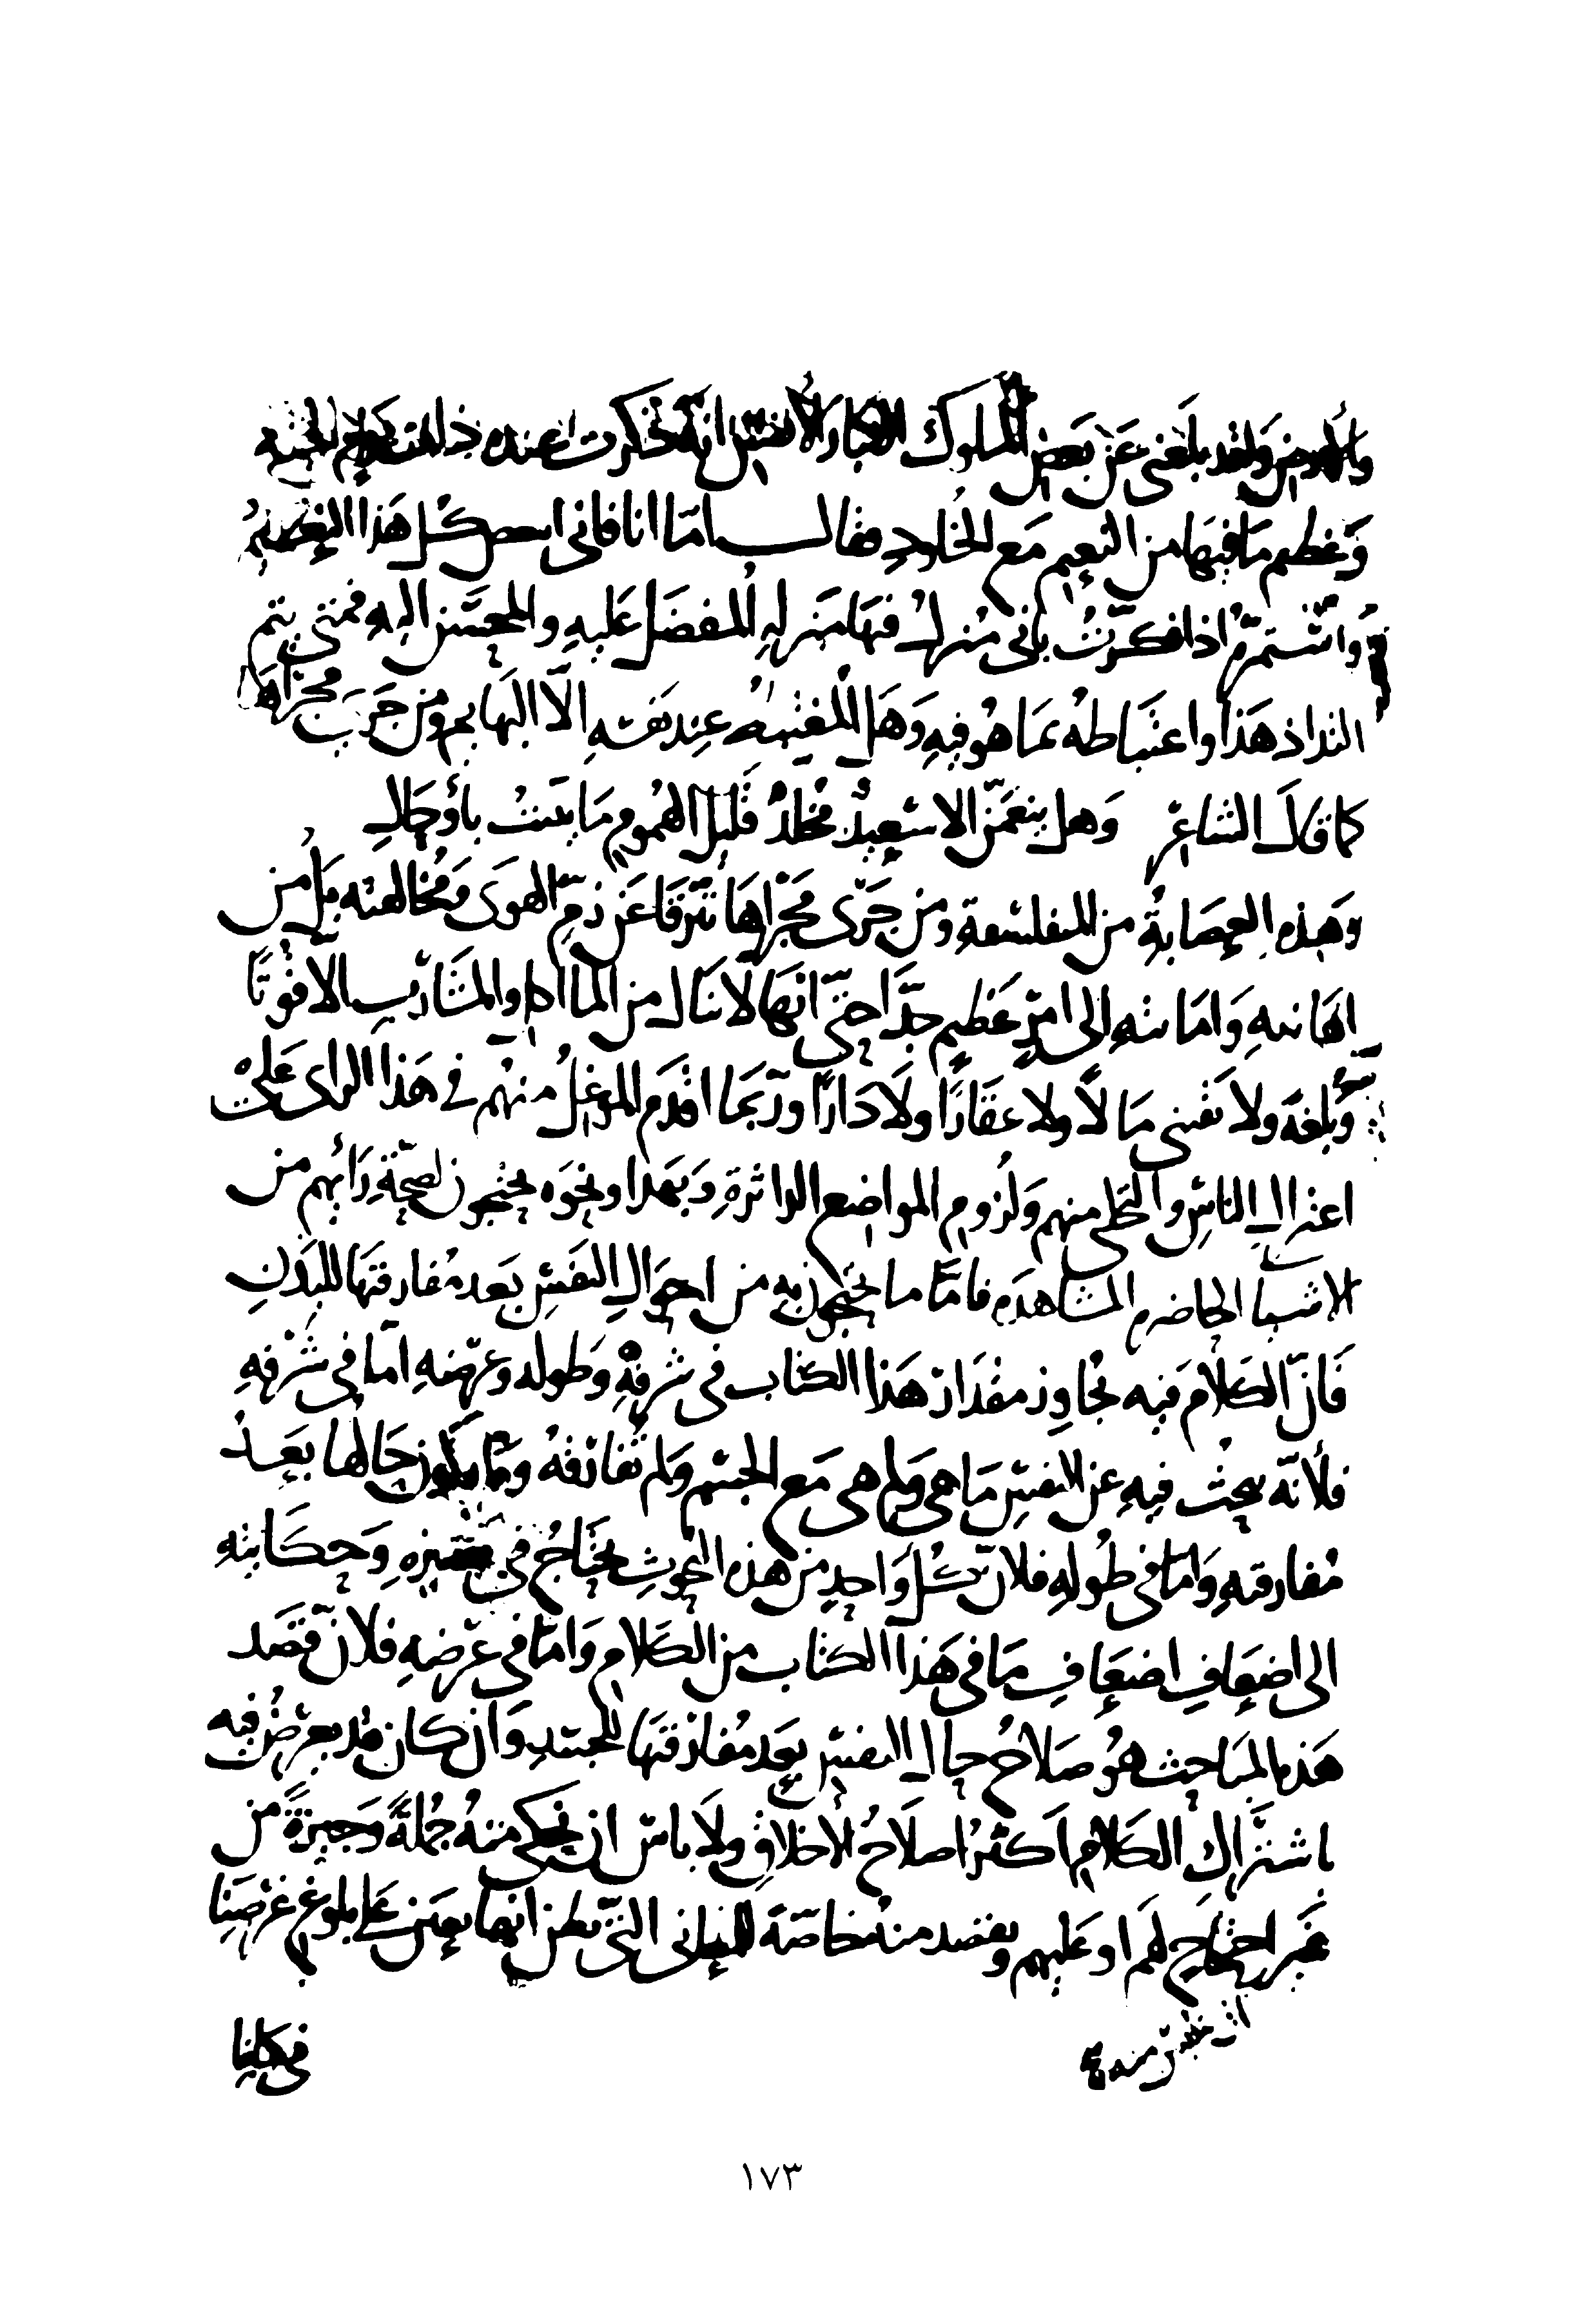 وأمرض ولقد بلغني عن بعض الملوك الكبار الأنفس انه ذكرت عنده ذات يوم الجنة
وعظم ما فيها من النعيم مع الخلود فقال اما انا فاني انغص كل هذا النعيم
وأستمره اذا فكرت باني منزل فيها منزلة المفضل عليه والمحسن اليه فمتى يتم
التذاذ هذا واغتباطه بما هو فيه وهل المغتبط عند نفسه الا البهايم ومن جرى مجراها
كما قال الشاعر وهل ينعمن الا سعيد مخلد قليل الهموم ما يبيت بأوجال
وهذه العصابة من المتفلسفة ومن جرى مجراها تترقا عن ذم الهوى ومخالفته بل من
اهانته واماتته الى امر عظيم جدا حتى انها لا تنال من المااكل والمشارب الا قوتا
وبلغة ولا تقتنى مالا ولا عقارا ولا دارا وربما اقدم الموغل منهم في هذا الراى على
اعتزال الناس والتخلى منهم ولزوم المواضع الداثرة وبهذا ونحوه يحتجون لصحة رأيهم من
الاشيا الحاضرة المشاهدة فاما ما يحتجون به من احوال النفس بعد مفارقتها للبدن
فان الكلام فيه يجاوز مقدار هذا الكتاب في شرفه وطوله وعرضه اما في شرفه
فلأنه يبحث فيه عن النفس ما هي ولم هي مع الجسم ولم تفارقه وما يكون حالها بعد
مفارقته واما في طوله فلان كل واحد من هذه البحوث يحتاج في تفسيره وحكايته
الى اضعاف اضعاف ما في هذا الكتاب من الكلام واما في عرضه فلان قصد
هذه المباحث هو صلاح حال النفس بعد مفارقتها للجسد وان كان قد يعرض فيه
باشتراك الكلام اكثر اصلاح الاخلاق ولا باس ان نحكي منه جملة وجيزة من
غير احتجاج لهم او عليهم ونقصد منه خاصة المعاني التي نظن انها تعين على بلوغ غرضنا
في كتابنا
١٧٣